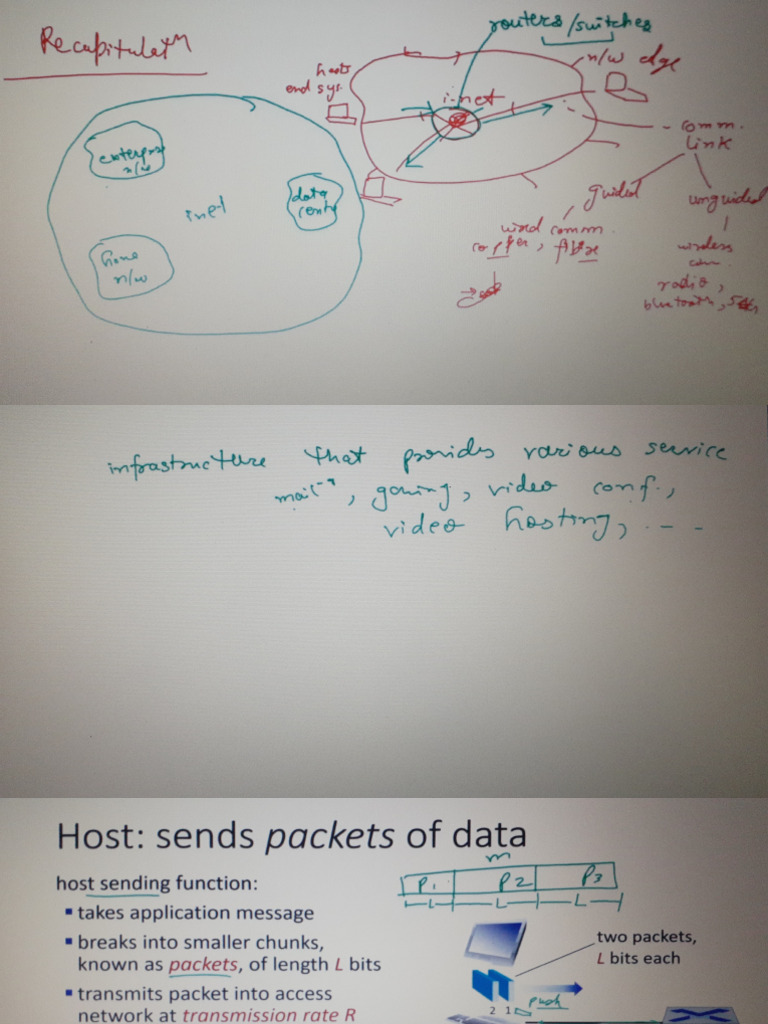 Recapitulatⁿ
routers/switches
n/w edge
hosts
end sys.
i-net
comm.
link
guided
unguided
wired comm.
copper, fibre
wireless
com
radio,
bluetooth,
enterprise
n/w
inet
data
centr
home
n/w
infrastructure that provides various service
mail, gaming, video conf.,
video hosting, . - -
Host: sends packets of data
m
host sending function:
P1 P2 P3
L L L
▪ takes application message
▪ breaks into smaller chunks,
known as packets, of length L bits
two packets,
L bits each
▪ transmits packet into access
network at transmission rate R
push
2 1